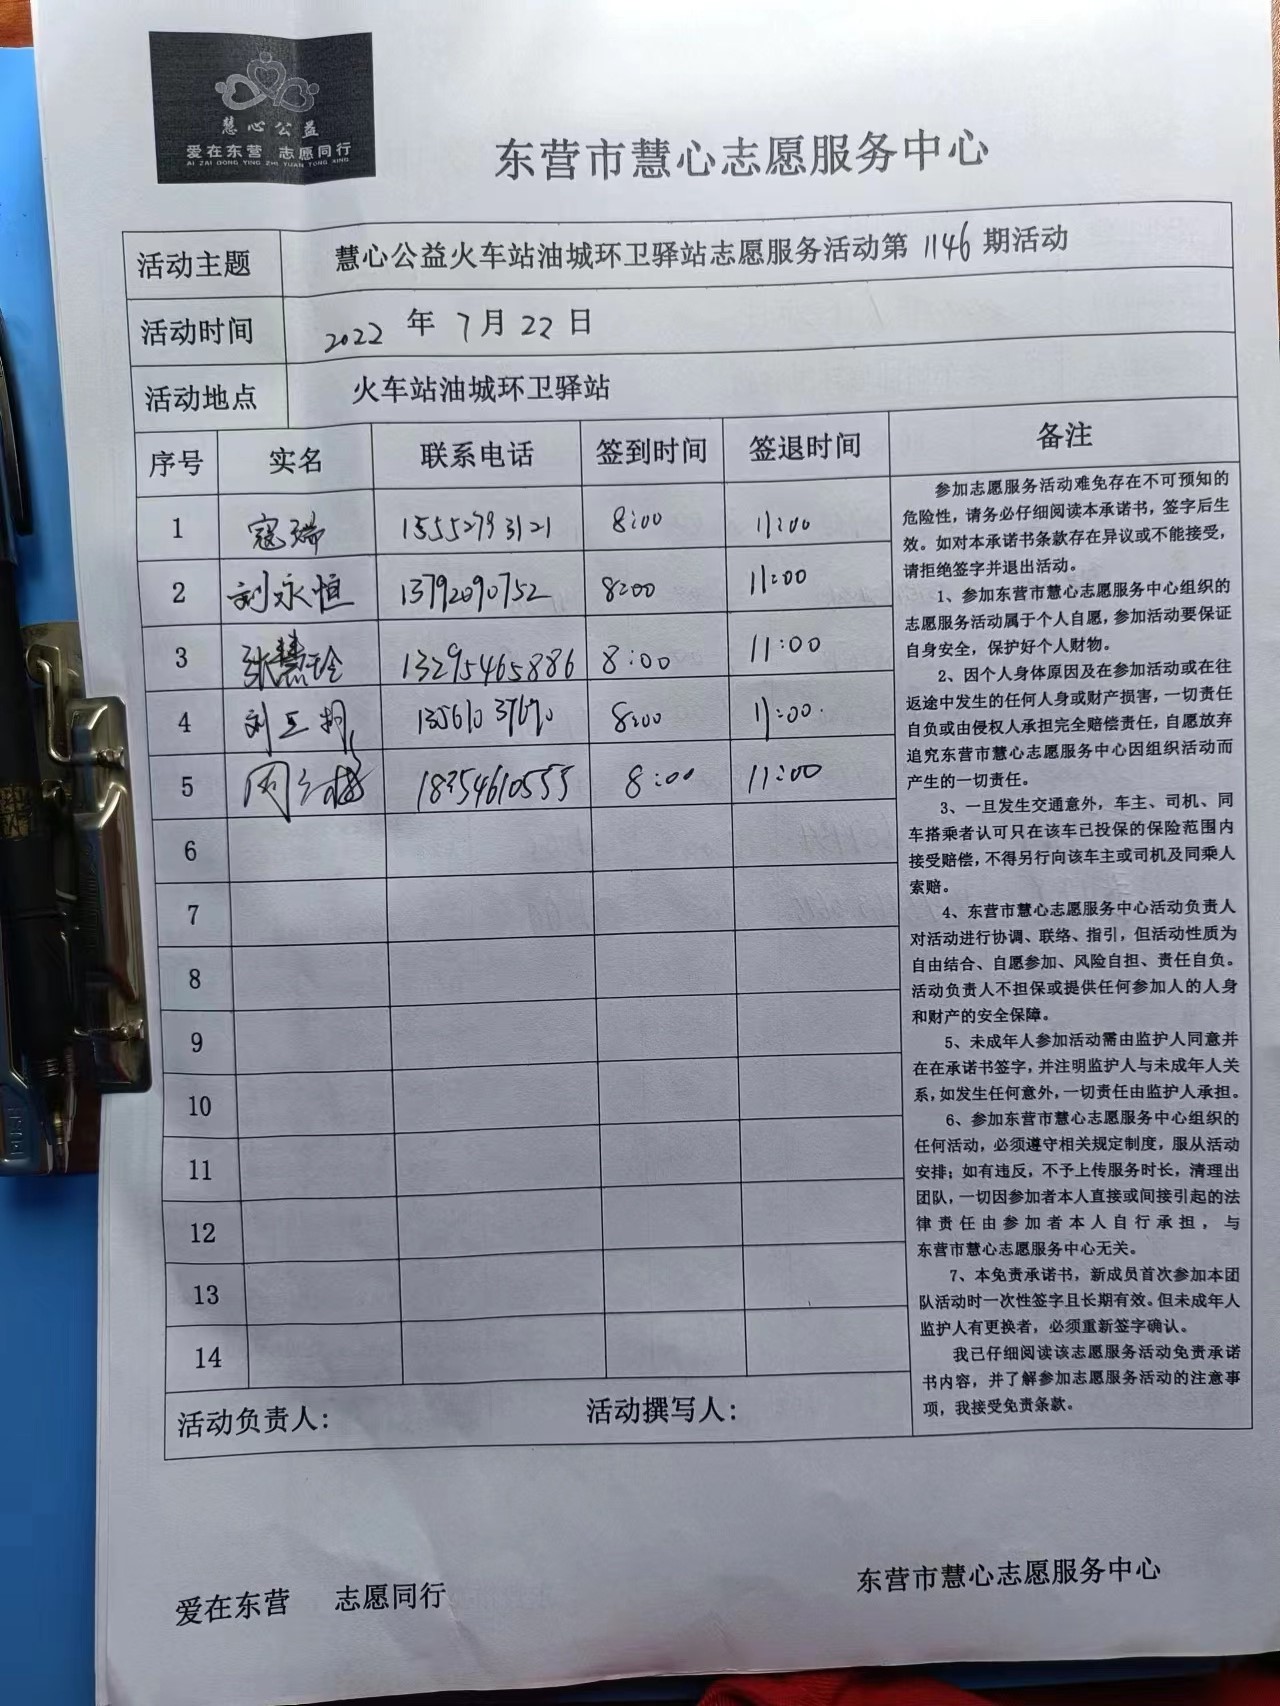 慧心公益
爱在东营 志愿同行
AI ZAI DONG YING ZHI YUAN TONG XING
东营市慧心志愿服务中心
活动主题 慧心公益火车站油城环卫驿站志愿服务活动第 1146 期活动
活动时间 2022 年 7 月 22 日
活动地点 火车站油城环卫驿站
序号 实名 联系电话 签到时间 签退时间 备注
1 寇瑞 15552793121 8:00 11:00
2 刘永恒 13792090752 8:00 11:00
3 张慧玲 13295465886 8:00 11:00
4 刘 8:00 11:00
5 周 18354610555 8:00 11:00
6
7
8
9
10
11
12
13
14
参加志愿服务活动难免存在不可预知的
危险性，请务必仔细阅读本承诺书，签字后生
效。如对本承诺书条款存在异议或不能接受，
请拒绝签字并退出活动。
1、参加东营市慧心志愿服务中心组织的
志愿服务活动属于个人自愿，参加活动要保证
自身安全，保护好个人财物。
2、因个人身体原因及在参加活动或在往
返途中发生的任何人身或财产损害，一切责任
自负或由侵权人承担完全赔偿责任，自愿放弃
追究东营市慧心志愿服务中心因组织活动而
产生的一切责任。
3、一旦发生交通意外，车主、司机、同
车搭乘者认可只在该车已投保的保险范围内
接受赔偿，不得另行向该车主或司机及同乘人
索赔。
4、东营市慧心志愿服务中心活动负责人
对活动进行协调、联络、指引，但活动性质为
自由结合、自愿参加、风险自担、责任自负。
活动负责人不担保或提供任何参加人的人身
和财产的安全保障。
5、未成年人参加活动需由监护人同意并
在在承诺书签字，并注明监护人与未成年人关
系，如发生任何意外，一切责任由监护人承担。
6、参加东营市慧心志愿服务中心组织的
任何活动，必须遵守相关规定制度，服从活动
安排；如有违反，不予上传服务时长，清理出
团队，一切因参加者本人直接或间接引起的法
律责任由参加者本人自行承担，与
东营市慧心志愿服务中心无关。
7、本免责承诺书，新成员首次参加本团
队活动时一次性签字且长期有效。但未成年人
监护人有更换者，必须重新签字确认。
我已仔细阅读该志愿服务活动免责承诺
书内容，并了解参加志愿服务活动的注意事
项，我接受免责条款。
活动负责人： 活动撰写人：
爱在东营 志愿同行 东营市慧心志愿服务中心